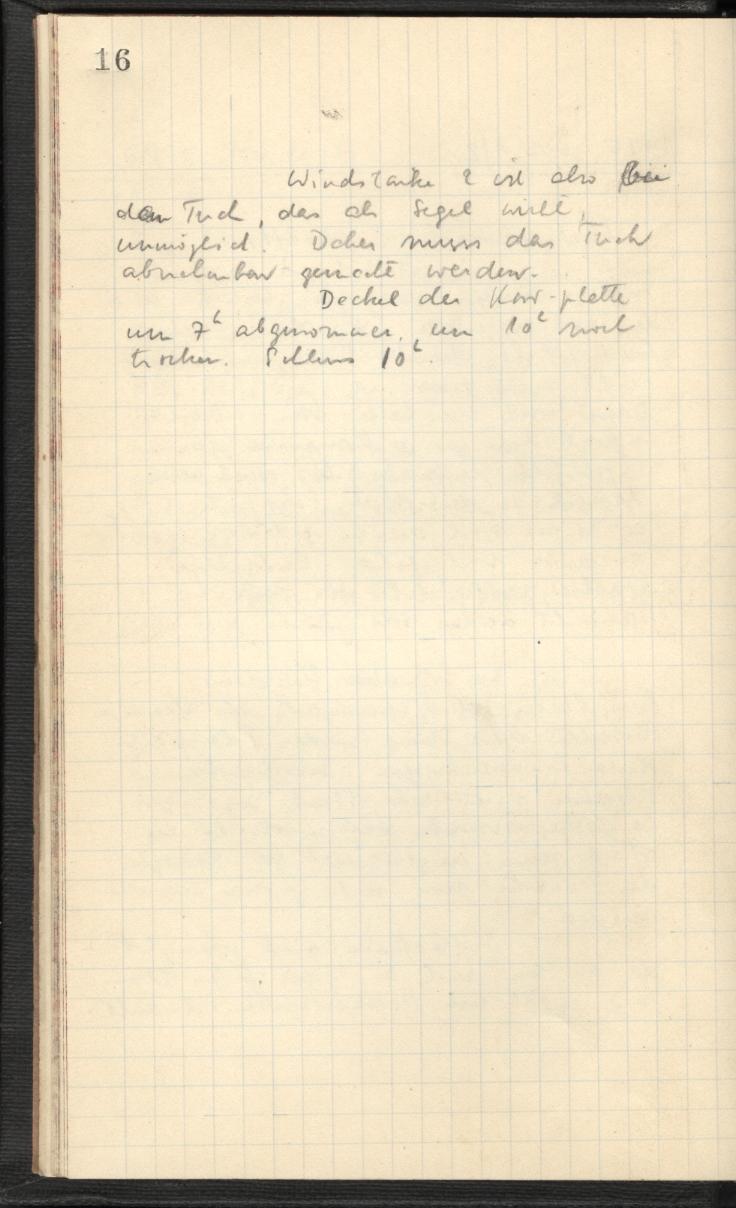 16
Windstärke 2 ist also bei
dem Tuch, das als Segel wirkt,
unmöglich. Daher muss das Tuch
abnehmbar gemacht werden.
Deckel der Kow-platte
um 7h abgenommen, um 10h noch
trocken. Schluss 10h.